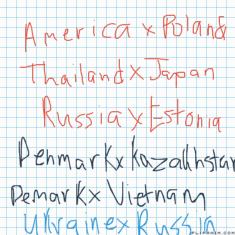 America x Poland
Thailand x Japan
Russia x Estonia
Denmark x Kazakhstan
Demark x Vietnam
Ukraine x Russia